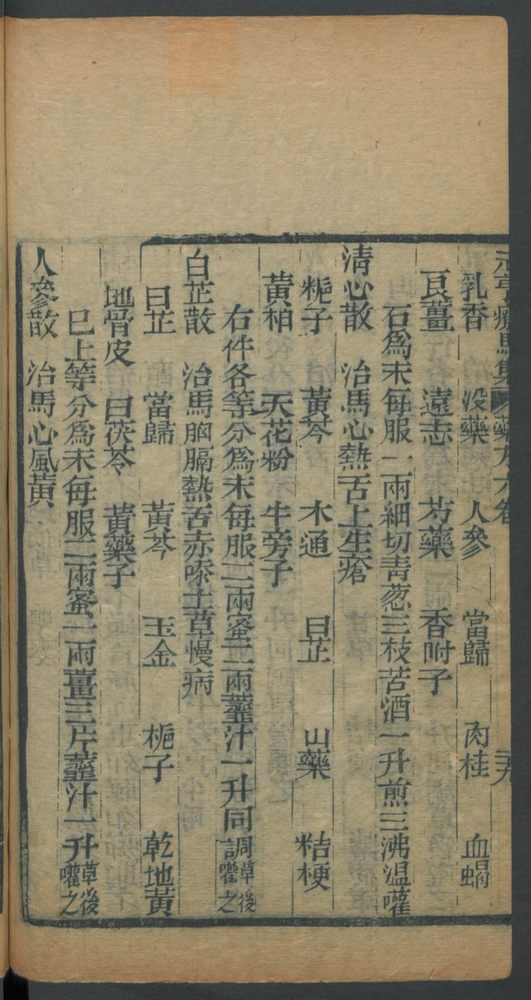 元亨療馬集 藥方六卷
乳香 没藥 人參 當歸 肉桂 血蝎
良薑 遠志 芍藥 香附子
右爲末每服一兩細切青葱三枝苦酒一升煎三沸温嚾
清心散 治馬心熱舌上生瘡
梔子 黄芩 木通 白芷 山藥 桔梗
黄柏 天花粉 牛旁子
右件各等分爲末每服二兩蜜二兩虀汁一升同調草後嚾之
白芷散 治馬胸膈熱舌赤喍土草慢病
白芷 當歸 黄芩 玉金 梔子 乾地黄
地骨皮 白茯苓 黄藥子
已上等分爲末每服二兩蜜二兩薑三片虀汁一升草後嚾之
人參散 治馬心風黄